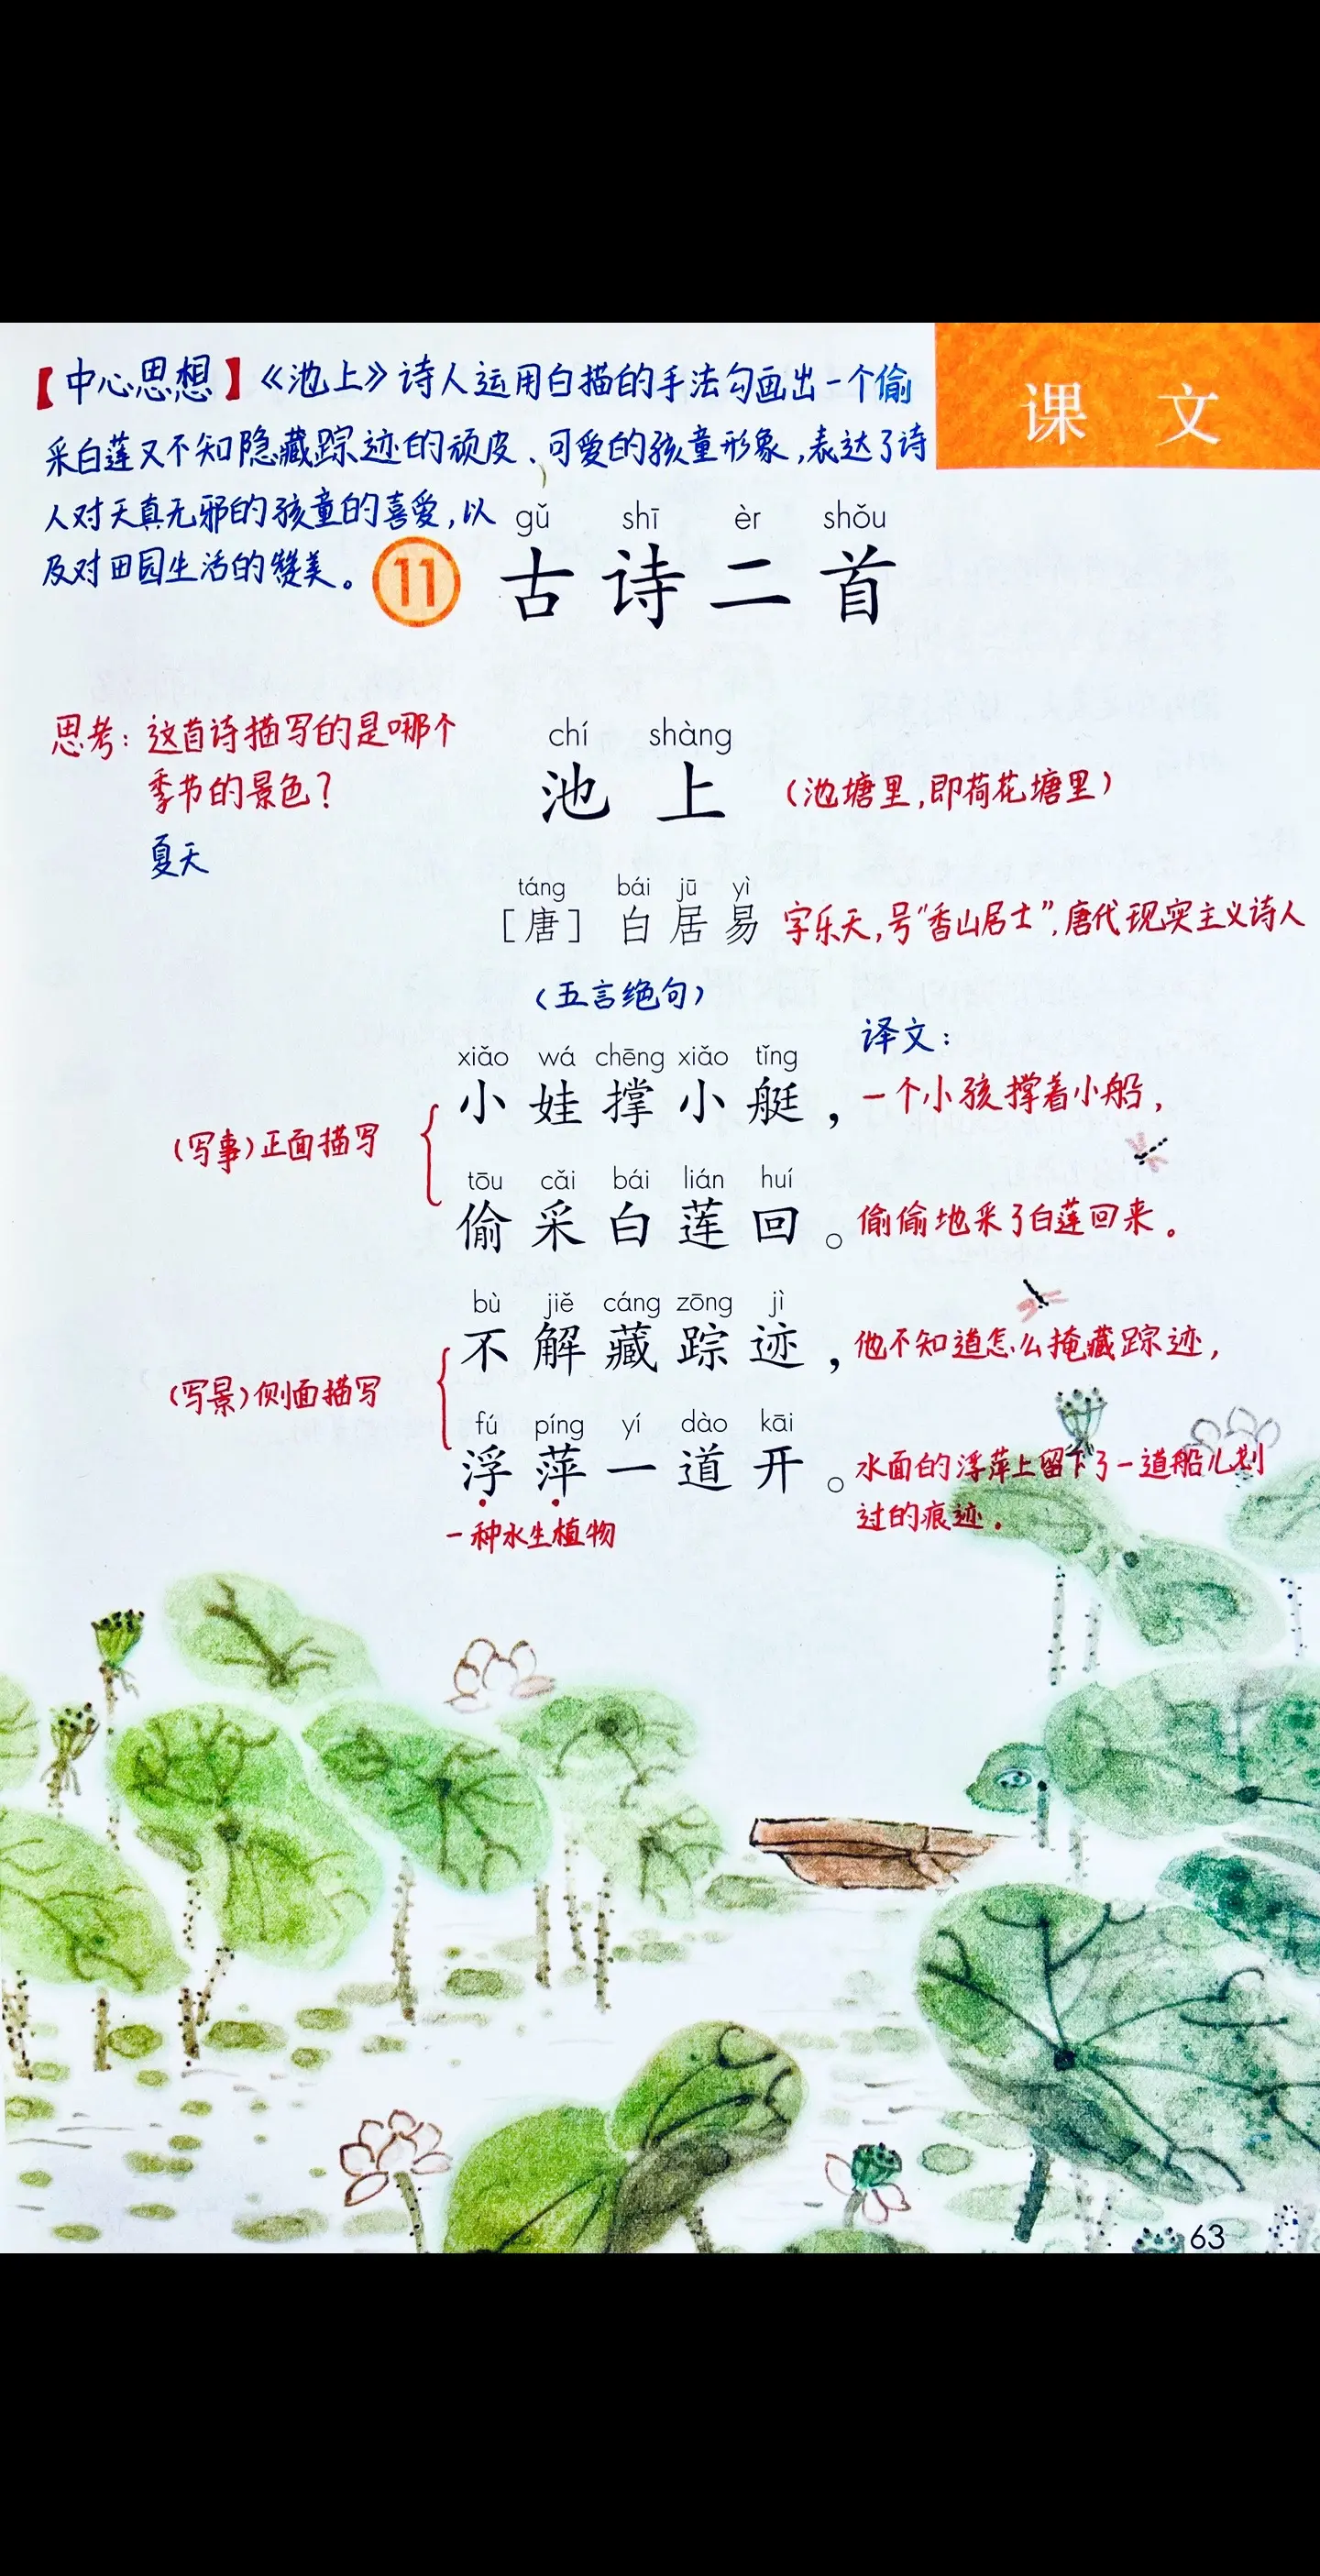 【中心思想】《池上》诗人运用白描的手法勾画出一个偷
采白莲又不知隐藏踪迹的顽皮、可爱的孩童形象,表达了诗
人对天真无邪的孩童的喜爱,以
及对田园生活的赞美。
课 文
gǔ shī èr shǒu
11 古诗二首
思考: 这首诗描写的是哪个
季节的景色?
夏天
chí shàng
池 上 (池塘里,即荷花塘里)
táng bái jū yì
[唐] 白居易 字乐天,号“香山居士”,唐代现实主义诗人
(五言绝句)
译文:
xiǎo wá chēng xiǎo tǐng
小娃撑小艇, 一个小孩撑着小船,
(写事)正面描写
tōu cǎi bái lián huí
偷采白莲回。 偷偷地采了白莲回来。
bù jiě cáng zōng jì
不解藏踪迹, 他不知道怎么掩藏踪迹,
(写景)侧面描写
fú píng yí dào kāi
浮萍一道开。 水面的浮萍上留下了一道船儿划
过的痕迹.
一种水生植物
63